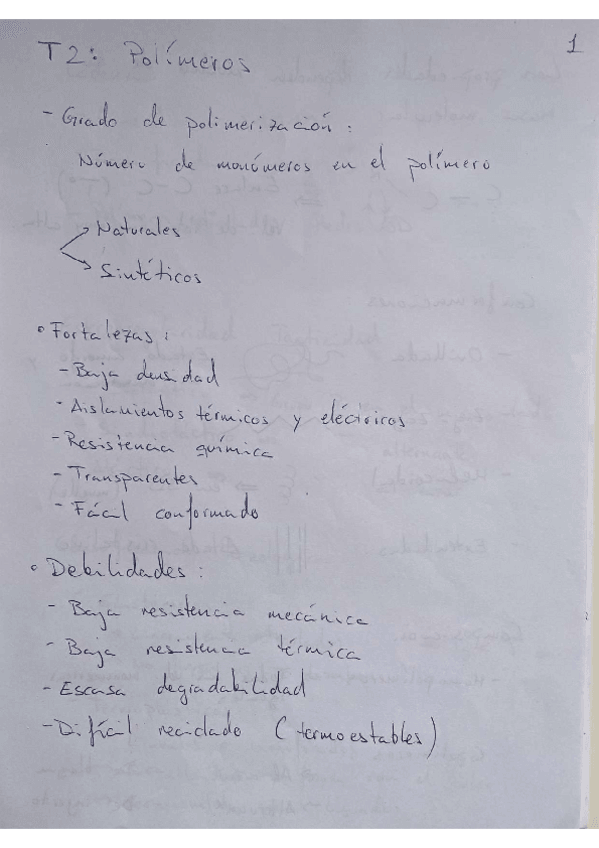 1
T2: Polímeros
- Grado de polimerización:
Número de monómeros en el polímero
Naturales
Sintéticos
• Fortalezas:
- Baja densidad
- Aislamientos térmicos y eléctricos
- Resistencia química
- Transparentes
- Fácil conformado
• Debilidades:
- Baja resistencia mecánica
- Baja resistencia térmica
- Escasa degradabilidad
- Difícil reciclado (termoestables)